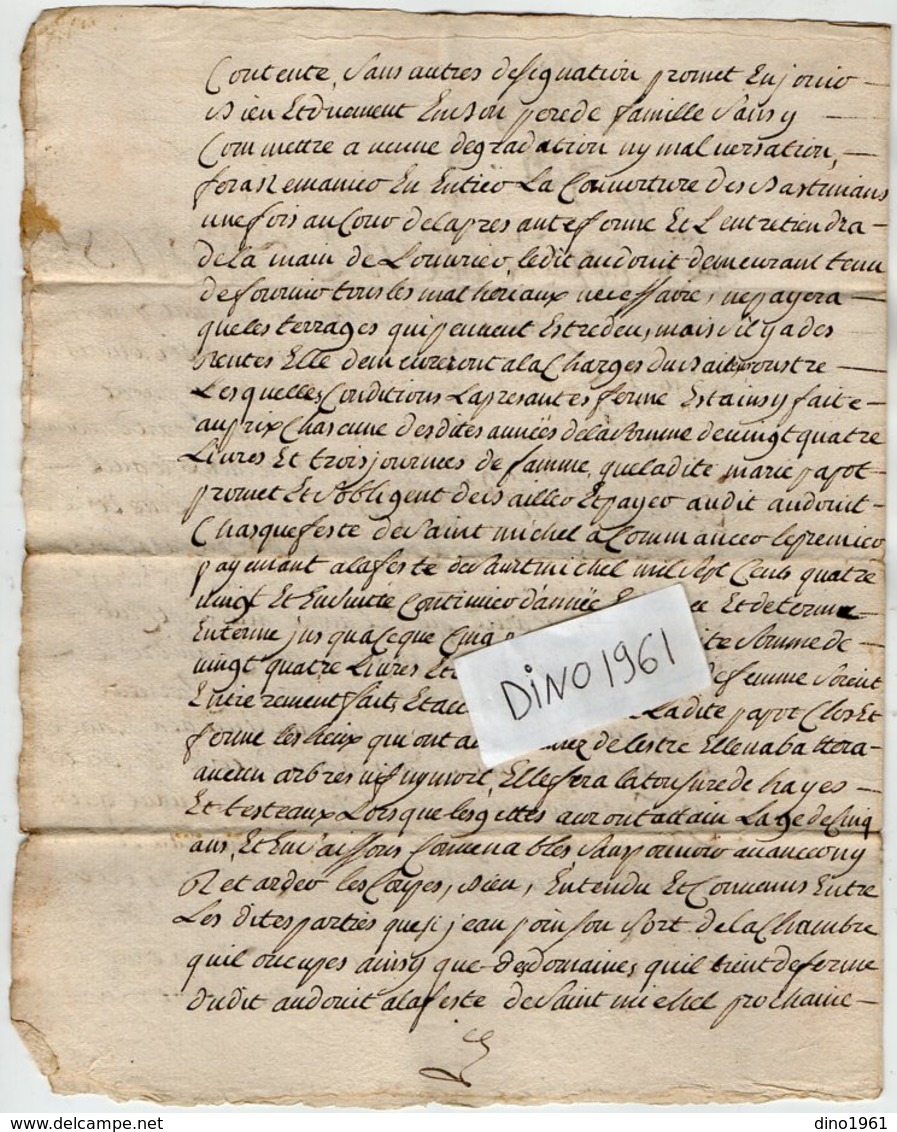 Contente, sans autres designation promet Enjouir
Bien Et duement En bon pere de famille sans y
Commettre aucune degradation ny malversation,
fera Remanier En Entier La Couverture des Bastimans
une fois au Cour de la presante ferme Et L'entretiendra
de la main de L'ouvrier, ledit audouit demeurant tenu
de fournir tous les matheriaux necessaire, ne payera
que les terrages qui peuvent Estre deu, mais s'il y a des
Rentes Elle demeureront a la Charges du
Lesquelles Conditions La presantes ferme Est ainsy faite
au prix Chascune des dites années de la somme de vingt quatre
Livres Et trois journees de famme, que ladite marie papot
promet Et s'obligent de Bailler Et payer audit audouit
Chasque feste de Saint michel a Commancer le premier
payemant a la feste de Saint michel mil Sept Cents quatre
vingt Et En suitte Continuer d'année Et de terme
En terme jus qu'a ce que Cinq somme de
vingt quatre Livres Et femme soient
Entierement faits, Et ladite papot Clos Et
ferme les lieux qui ont de l'estre Elle n'abattera
aucun arbres vif ny mort, Elle fera la tousure de hayes
Et testeaux Lors que les gettes auront attain L'age de Cinq
ans, Et En Saissons Convenables, sans pouvoir avancer ny
Retarder les Coupes, Bien, Entendu Et Convenus Entre
Les dites parties que si jean poinson sort de la Chambre
qu'il occupes ainsy que des domaines, qu'il tient de ferme
dudit audouit a la feste de Saint michel prochaine
DINO 1961
dino1961